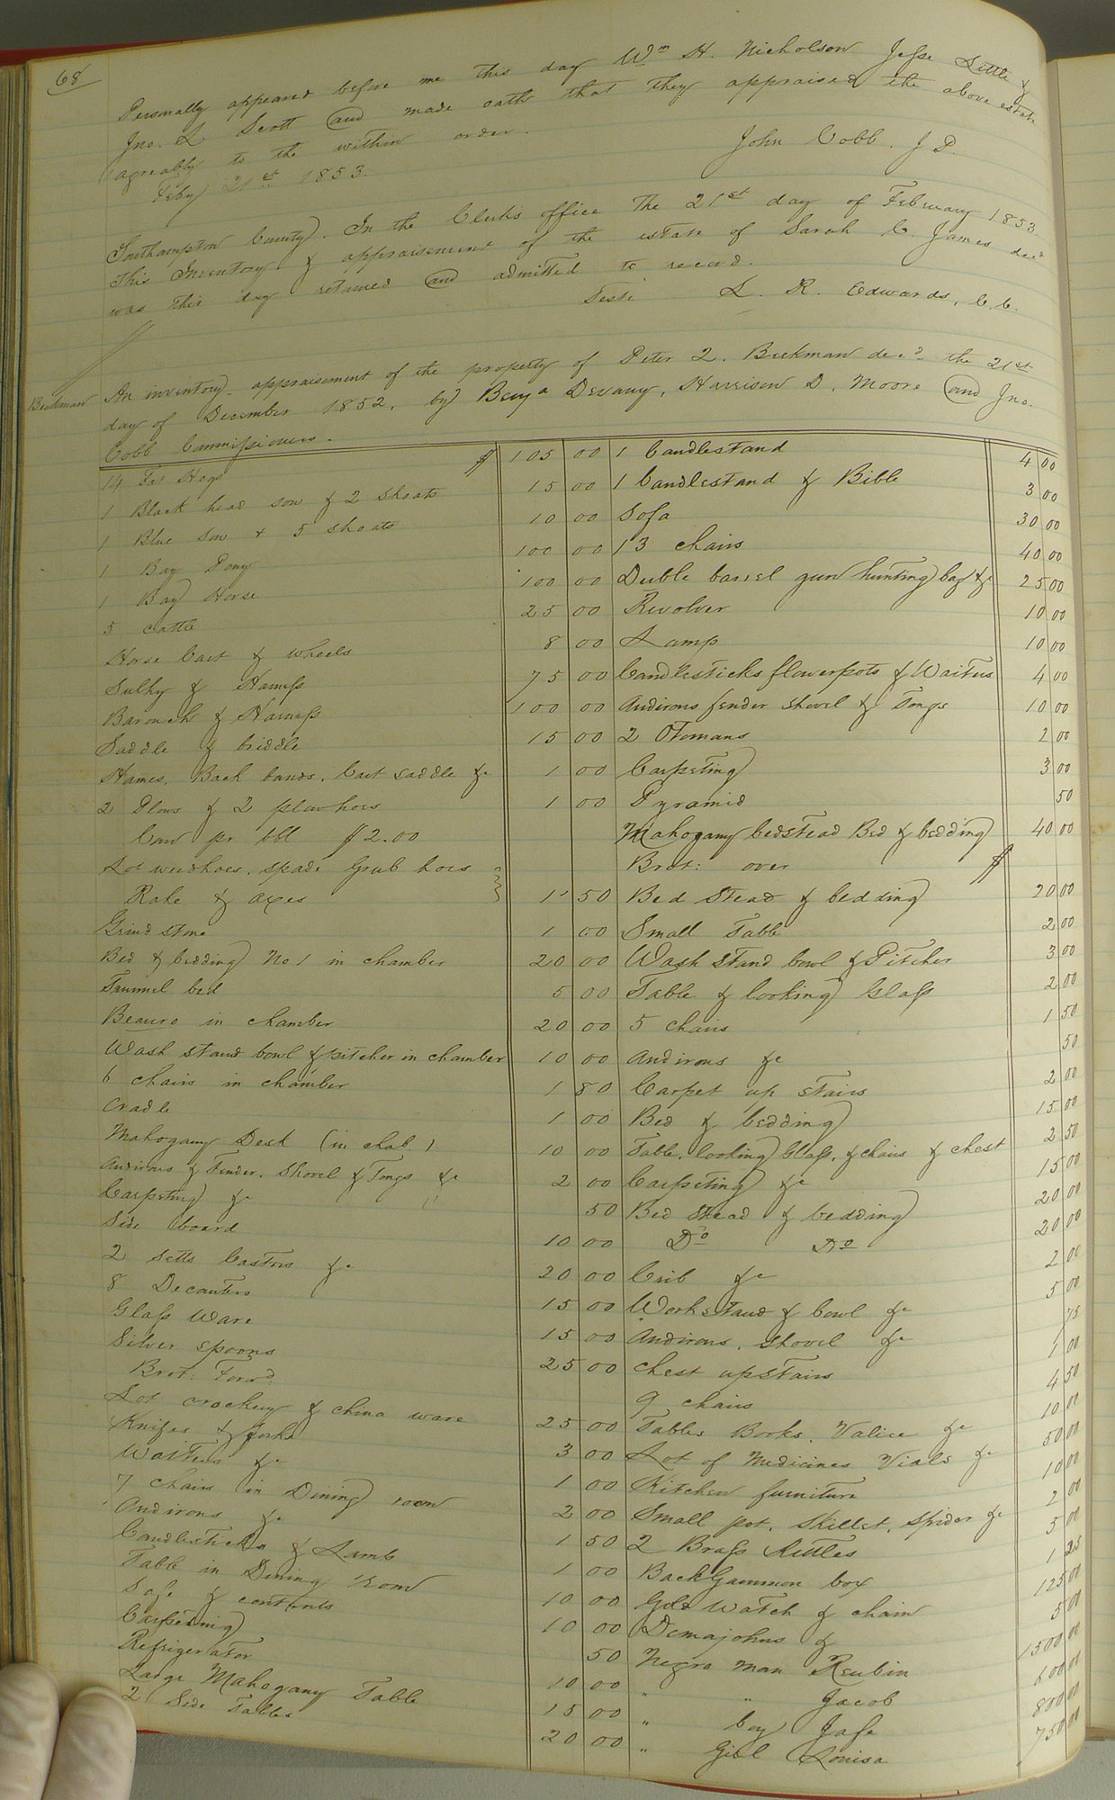 68
Personally appeared before me this day Wm H. Nicholson Jesse Little &
Jno. L Scott and made oath that they appraised the above estate
agreably to the within order.
John Cobb. J P.
Feby 21st 1853.
Southampton County. In the Clerks office the 21st day of February 1853
This Inventory & appraisement of the estate of Sarah C. James decd
was this day returned and admitted to record.
Teste L. R. Edwards, C. C.
Beekman
An inventory appraisement of the property of Peter 2. Beekman decd the 21st
day of December 1852, by Benja Devany, Harrison D. Moore and Jno.
Cobb Commissioners.
14 Fat Hogs $ 105 00
1 Black head sow & 2 shoats 15 00
1 Blue Sow & 5 shoats 10 00
1 Bay Pony 100 00
1 Bay Horse 100 00
5 cattle 25 00
Horse Cart & wheels 8 00
Sulky & Harness 75 00
Barouch & Harness 100 00
Saddle & briddle 15 00
Hames, Back bands, Cart saddle &c 1 00
2 Plows & 2 plowhoes 1 00
Corn pr bbl $2.00
Lot weedhoes, spade Grub hoes
Rake & axes 1 50
Grind stone 1 00
Bed & bedding No 1 in chamber 20 00
Trummel bed 5 00
Beauro in chamber 20 00
Wash stand bowl & pitcher in chamber 10 00
6 chairs in chamber 1 80
Cradle 1 00
Mahogany Desk (in chab.) 10 00
Andirons & Fender, Shovel & Tongs &c 2 00
Carpeting &c 50
Side board 10 00
2 setts Castors &c 20 00
8 Decanters 15 00
Glass Ware 15 00
Silver spoons 25 00
Brot: Forwd:
Lot crockery & china ware 25 00
Knifes & forks 3 00
Waiters &c 1 00
7 chairs in Dining room 2 00
Andirons &c 1 50
Candlesticks & Lamb 1 00
Table in Dining room 10 00
Safe & contents 10 00
Carpeting 50
Refrigerator 10 00
Large Mahogany Table 15 00
2 Side Tables 20 00
1 Candlestand 4 00
1 Candlestand & Bible 3 00
Sofa 30 00
13 chairs 40 00
Duble barrel gun hunting bag &c 25 00
Revolver 10 00
Lamp 10 00
Candlesticks flowerpots & Waiters 4 00
Andirons fender shovel & Tongs 10 00
2 Otomans 2 00
Carpeting 3 00
Pyramid 50
Mahogany bedstead Bed & bedding 40 00
Brot: over $
Bed Stead & bedding 20 00
Small Table 2 00
Wash Stand bowl & Pitcher 3 00
Table & looking Glass 2 00
5 chairs 1 50
Andirons &c 50
Carpet up stairs 2 00
Bed & bedding 15 00
Table, looking Glass, & chairs & chest 2 50
Carpeting &c 15 00
Bed Stead & bedding 20 00
Do Do 20 00
Crib &c 2 00
Workstand & bowl &c 5 00
Andirons, shovel &c 75
Chest upstairs 1 00
9 chairs 4 50
Tables Books, Valice &c 10 00
Lot of Medicines Vials &c 50 00
Kitchen furniture 10 00
Small pot, Skillet, Spider &c 2 00
2 Brass Kittles 5 00
BackGammon box 1 25
Gold Watch & chain 125 00
Demajohns & 5 00
Negro man Reubin 1500 00
" " Jacob 600 00
" boy Jase 800 00
" Girl Louisa 750 00